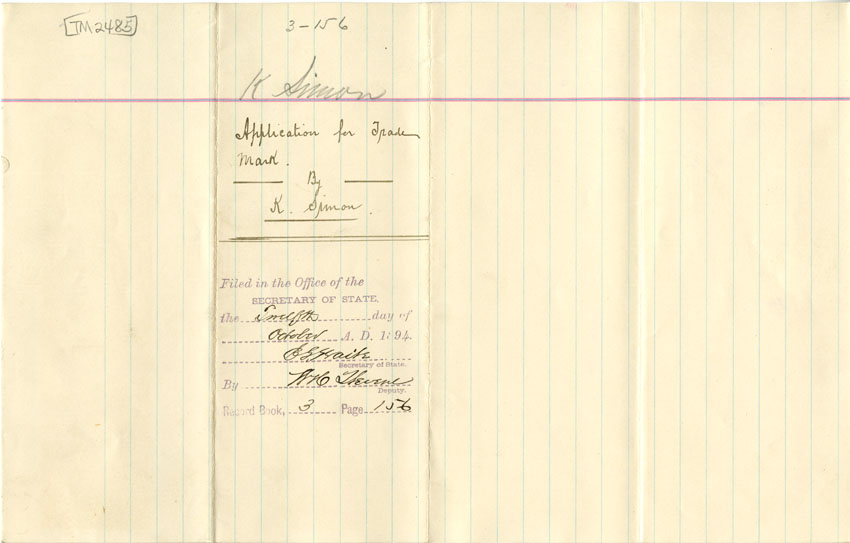 [TM2485]
3-156
K Simon
Application for Trade
Mark.
By
K. Simon.
Filed in the Office of the
SECRETARY OF STATE.
the Twelfth day of
October A. D. 1894.
E G Waite
Secretary of State.
By W H Stevens
Deputy.
Record Book, 3 Page 156